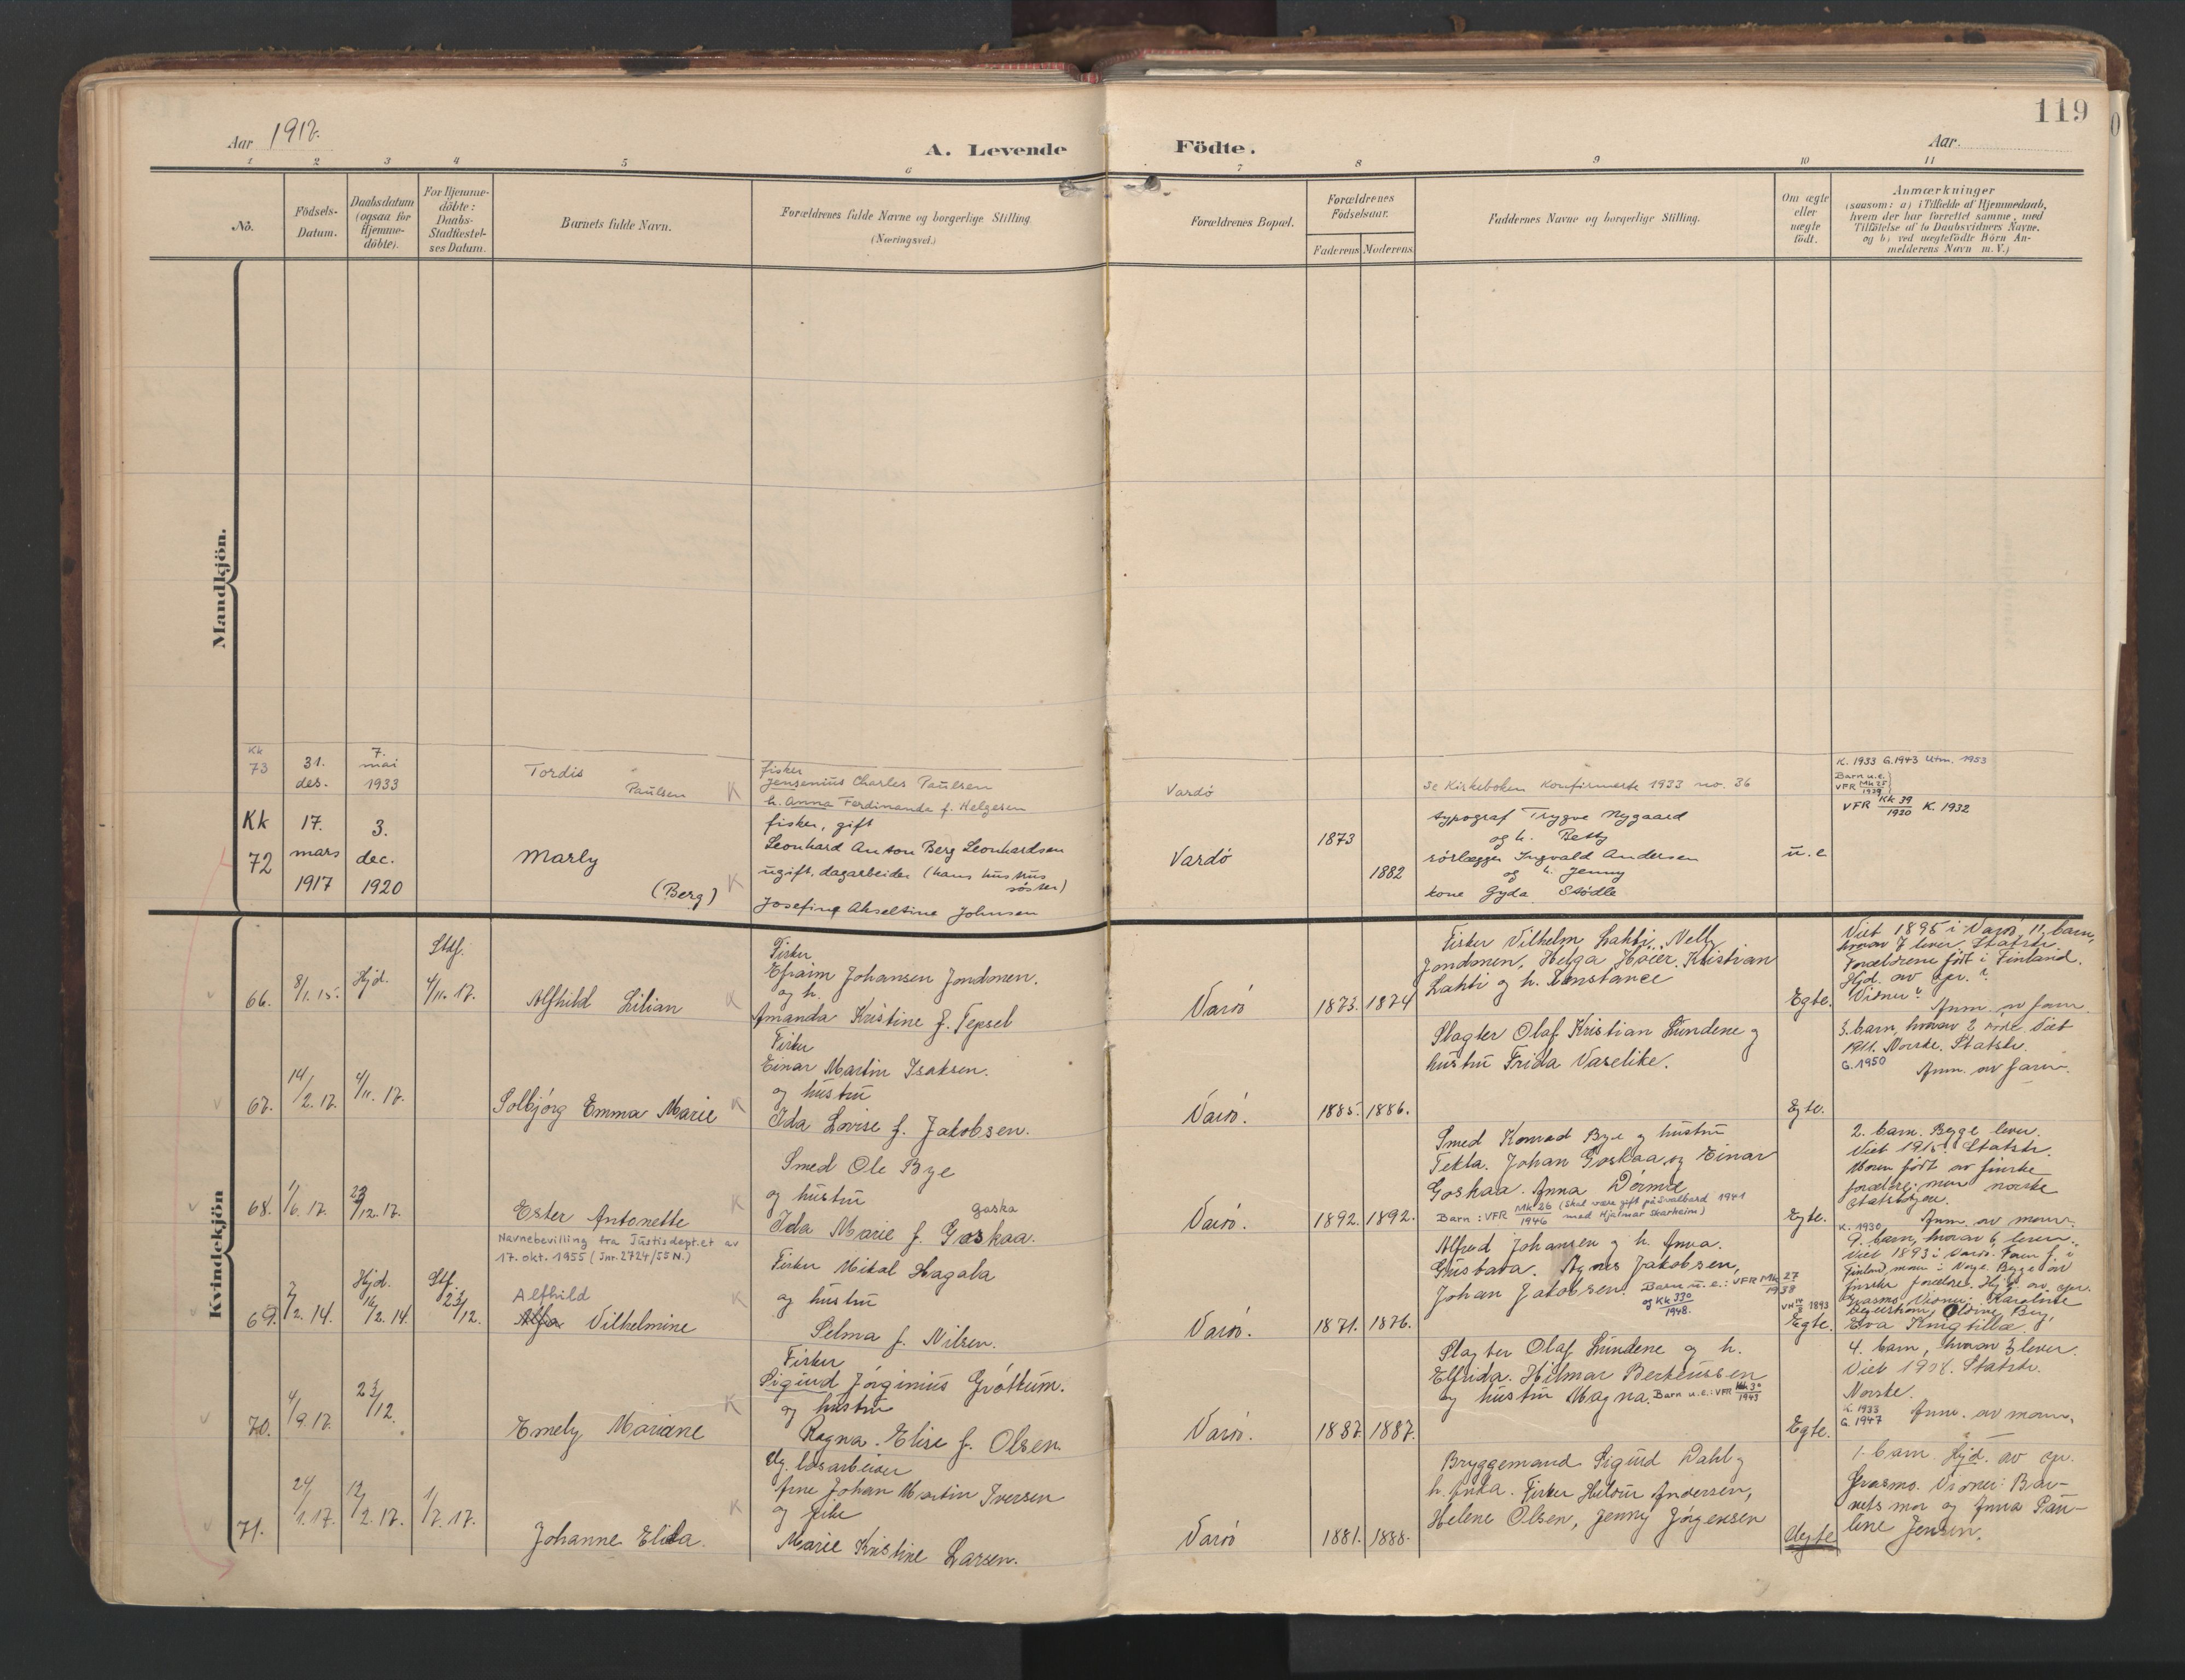 119
Aar 1917.
A. Levende Födte.
Aar
1 2 3 4 5 6 7 8 9 10 11
No.
Födsels-
Datum.
Daabsdatum
(ogsaa for
Hjemme-
döbte).
For Hjemme-
döbte:
Daabs-
Stadfæstel-
ses Datum.
Barnets fulde Navn.
Forældrenes fulde Navne og borgerlige Stilling.
(Næringsvei.)
Forældrenes Bopæl.
Forældrenes
Födselsaar.
Faderens Moderens.
Faddernes Navne og borgerlige Stilling.
Om ægte
eller
uægte
födt.
Anmærkninger
(saasom: a) i Tilfælde af Hjemmedaab,
hvem der har forrettet samme, med
Tilföielse af to Daabsvidners Navne,
og b) ved uægtefödte Börn An-
melderens Navn m. V.)
Mandkjön.
Kk
73
31.
des.
7.
mai
1933
Tordis
Paulsen
K
fisker
Jensenius Charles Paulsen
h. Anna Ferdinanda f. Helgesen
Vardö
se Kirkeboken Konfirmerte 1933 no. 36
K. 1933 G.1943 Utm. 1953
Barn u.e.
VFR Mk 25
1939
Kk
72
17.
mars
1917
3.
dec.
1920
Marly
(Berg)
K
fisker, gift
Leonhard Anton Berg Leonhardsen
ugift, dagarbeider (hans hustrus
söster)
Josefine Akseltine Johnsen
Vardö
1873
1882
typograf Trygve Nygaard
og h. Betty
rörlægger Ingvald Andersen
og h. Jenny
kone Gyda Stödle
u.e
VFR Kk 39
1920 K. 1932
Kvindekjön
66.
8/1. 15.
Hjd.
Stdf.
4/11. 17.
Alfhild Lilian
K
Fisker
Efraim Johansen Jondmen.
og h.
Amanda Kristine f. Tepsel
Vardö
1873. 1874
Fisker Vilhelm Lahti, Nelly
Jondmen, Helga Höier, Kristian
Lahti og h. Konstance
Egte.
Viet 1895 i Vardö, 11 barn,
hvorav 7 lever. Statsk.
Forældrene född i Finland.
Hjd. av
Anm. av faren
67.
14/2. 17.
4/11. 17.
Solbjörg Emma Marie
K
Fisker
Einar Martin Isaksen.
og hustru
Ida Lovise f. Jakobsen.
Vardö.
1885. 1886.
Slagter Olaf Kristian Lundene og
hustru Frida Vaselike.
Egte.
3. barn, hvorav 2 Viet
1911. Norske. Statsk.
G. 1950
Anm. av faren.
68.
1/6. 17.
23/12. 17.
Ester Antonette
K
Smed Ole Bye
og hustru
Gaska
Ida Marie f. Goskaa.
Vardö.
1892. 1892.
Smed Konrad Bye og hustru
Tekla. Johan Goskaa og Einar
Goskaa. Anna
Barn: VFR Mk 26
1946 (Skal være gift på Svalbard 1941
med Hjalmar Skarheim)
Egte.
2. barn. Begge lever.
Viet 1915. Statsk.
Moren född av finske
forældre; men norske
statsborgere.
K. 1930 Anm. av moren.
Navnebevilling fra Justisdept.et av
17. okt. 1955 (Jnr. 2724/55 N.)
69.
2/2. 14.
Hjd.
16/2. 14.
Stf.
23/12.
Alfhild
Alfa Vilhelmine
K
Fisker Mikal Hagala
og hustru
Selma f. Nilsen.
Vardö.
1871. 1876.
Alfred Johansen og h. Anna.
Gustava. Agnes Jakobsen,
Johan Jakobsen. Barn u.e.: VFR Mk 27
1938
og Kk 330
1948.
Egte.
9. barn, hvorav 6 lever.
Viet 1893 i Vardö. Faren f. i
Finland, moren i Norge. Begge av
finske forældre. Hjd. av
Vidner: Karoline
Eva
70.
4/9. 17.
23/12.
Emely Mariane
K
Fisker
Sigurd Jörginius Gröttum.
og hustru
Ragna Elise f. Olsen
Vardö.
1887. 1887.
Slagter Olaf Lundene og h.
Elfrida. Hilmar Berteussen
og hustru Magna. Barn u.e.: VFR Mk 30
1943
Egte.
4. barn, hvorav 3 lever.
Viet 1908. Statsk.
Norske.
K. 1933
G. 1947 Anm. av moren.
71.
24/1. 17.
12/2. 17.
1/7. 17.
Johanne Elida.
K
Ug. lösarbeider
Arne Johan Martin Iversen
og pike
Marie Kristine Larsen.
Vardö
1881. 1888.
Bryggemand Sigurd Dahl og
h. Anka. Fisker Hildur Andersen,
Helene Olsen, Jenny Jörgensen
Uegte
1. barn. Hjd. av
Vidner: Bar-
nets mor og Anna Pau-
line Jensen.